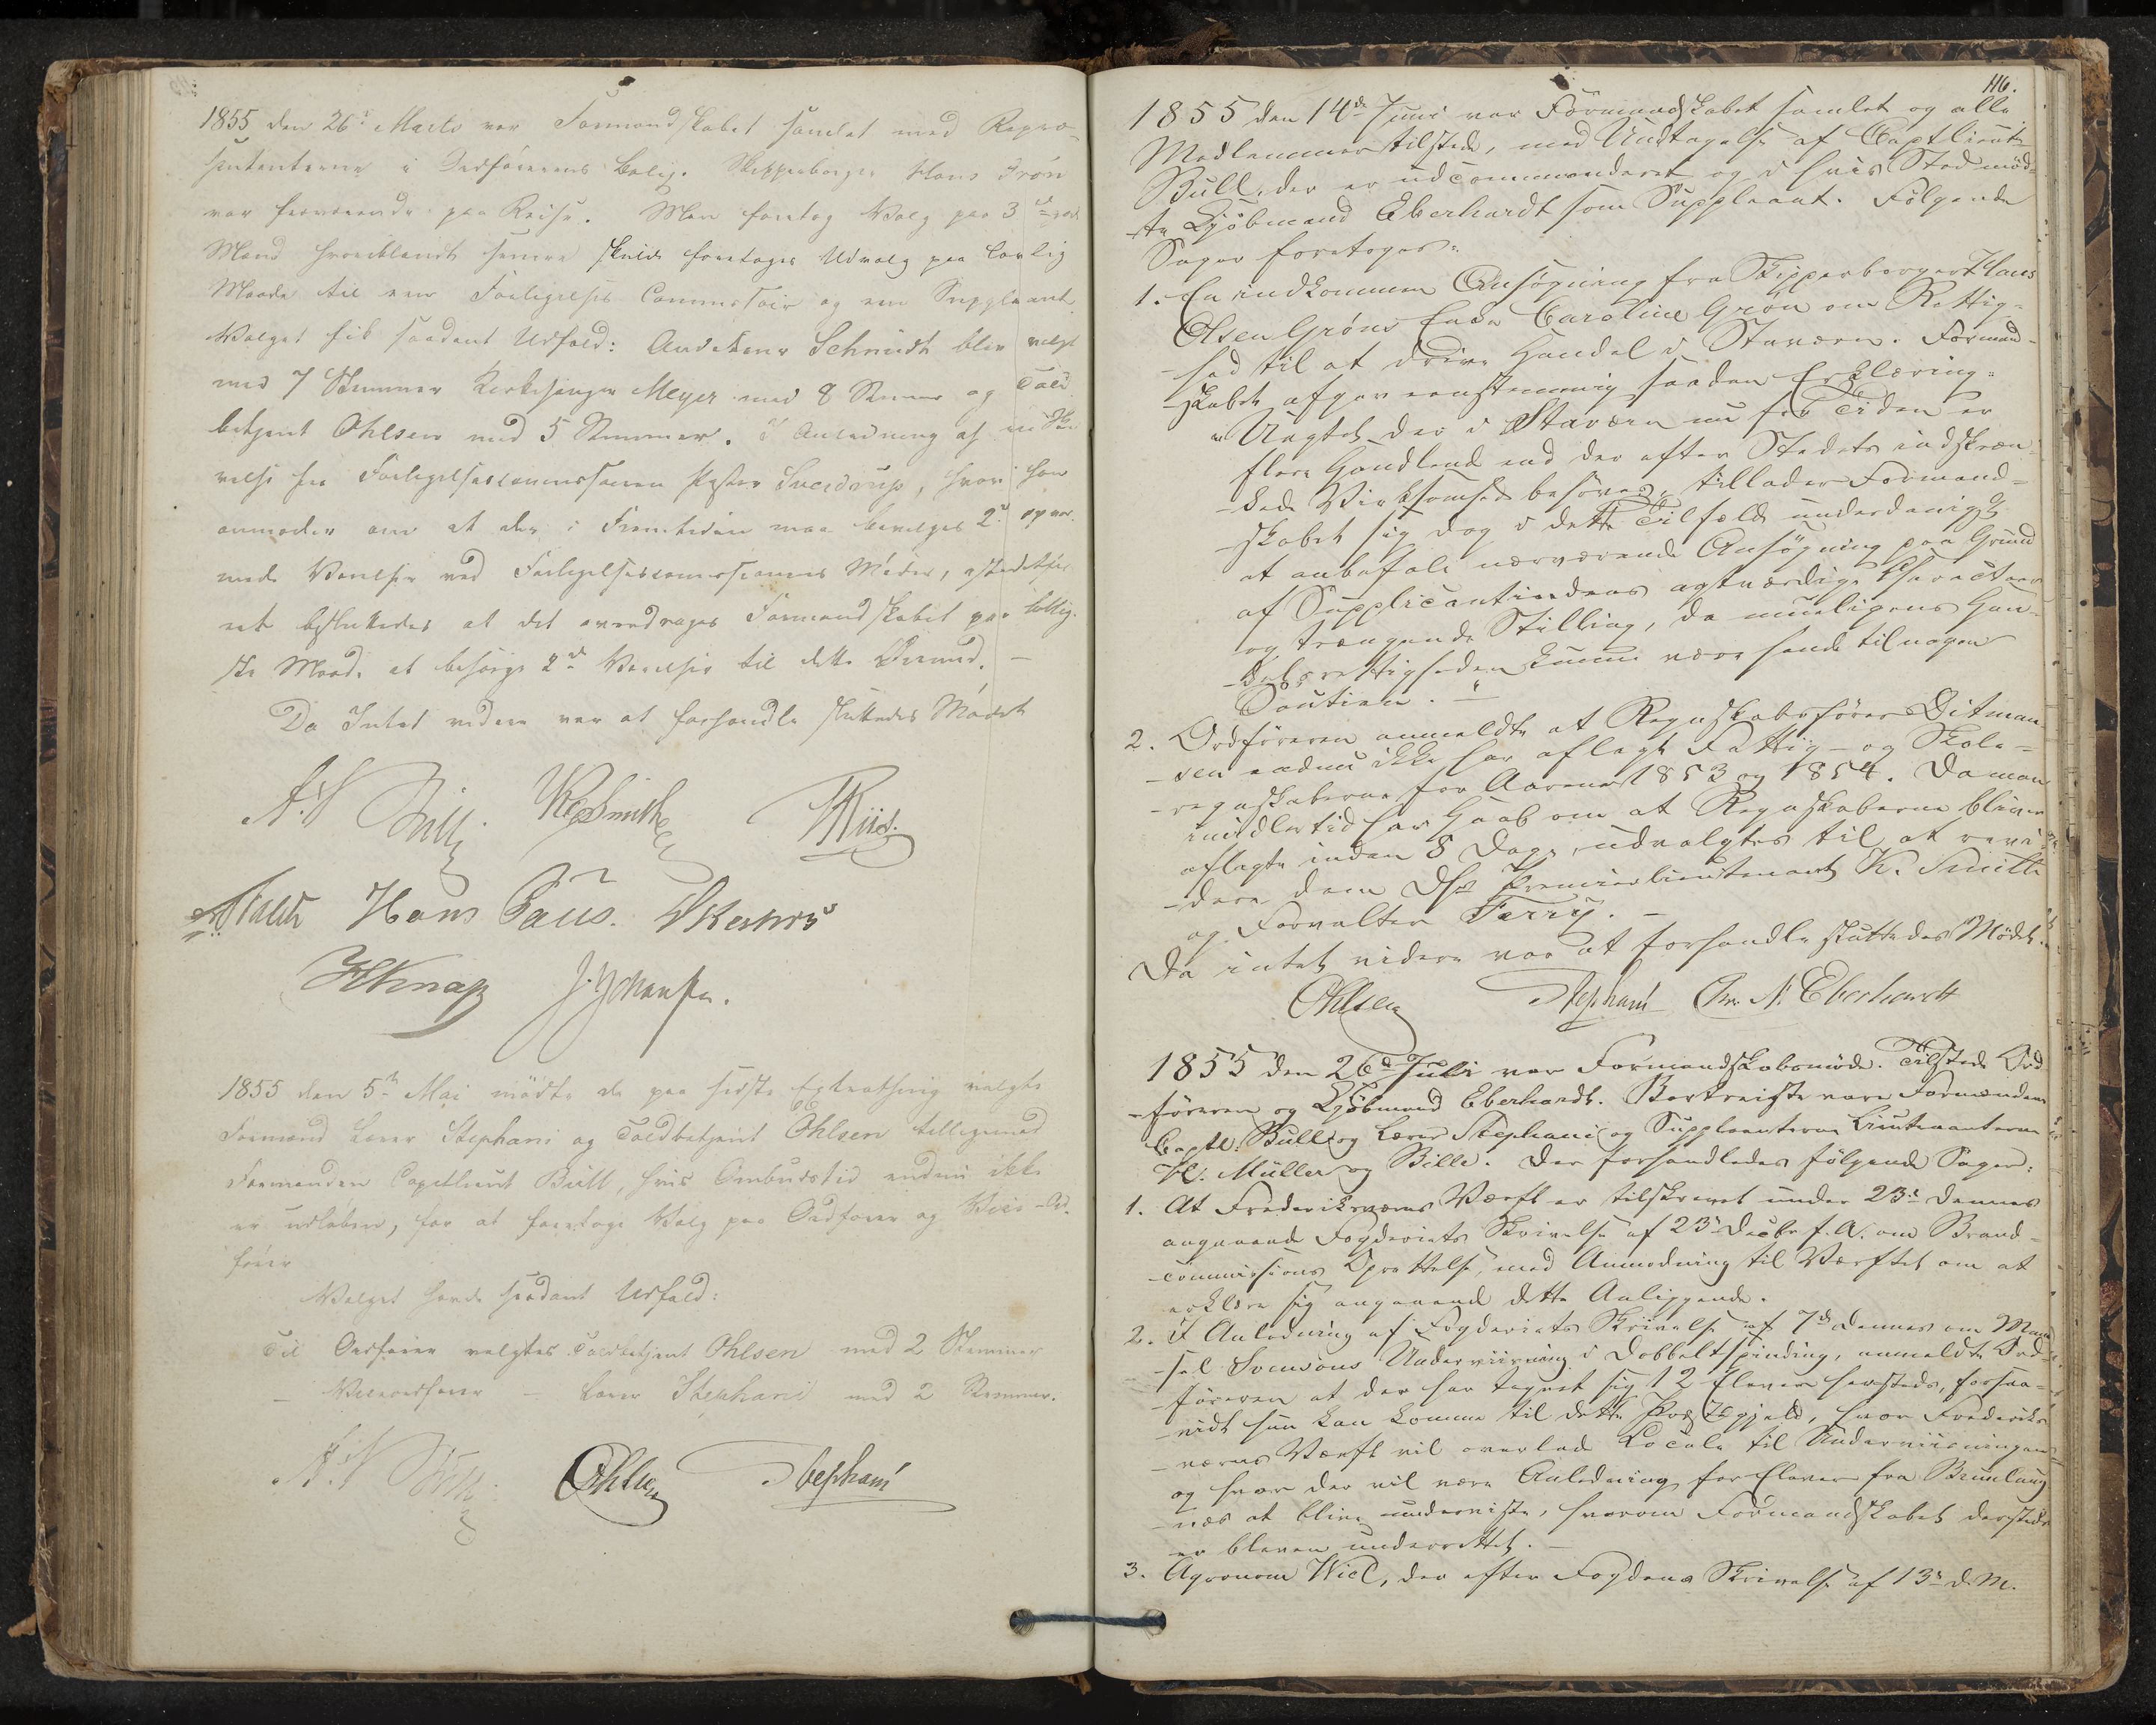 1855 den 26de Marts var Formandskabet samlet med Repræ-
sentanterne i Ordførerens Bolig. Skipperborger Hans Grön
var fraværende paa Reise. Man foretog Valg paa 3de
Mænd hvoriblandt senere skulde foretages Udvalg paa lovlig
Maade til een Forligelses Commissair og een Suppleant.
Valget fik saadant Udfald: Schmidt blev valgt
med 7 Stemmer Kirkesanger Meyer med 8 Stemmer og Told
betjent Ohlsen med 5 Stemmer. I Anledning af en Skri
velse fra Forligelsescommissairen Pastor Sverdrup, hvori han
anmoder om at der i Fremtiden maa bevilges 2de opvar-
mede Værelser ved Forligelsescommissionens Møder,
besluttedes at det overdrages Formandskabet paa billig-
ste Maade at besørge 2de Værelser til dette Øiemed. —
Da Intet videre var at forhandle sluttedes Mödet
Bull. Smith Riis.
Hans Paus.
Knap J. Johansen.
1855 den 5te Mai mödte de paa sidste valgte
Formænd Lærer Stephani og Toldbetjent Ohlsen tilligemed
Formanden Captlieut Bull, hvis Ombudstid endnu ikke
er udløben, for at foretage Valg paa Ordfører og Vice-Ord-
fører
Valget havde saadant Udfald:
Til Ordfører valgtes Toldbetjent Ohlsen med 2 Stemmer
— Viceordfører — Lærer Stephani med 2 Stemmer.
Bull. Ohlsen Stephani
116.
1855 den 14de Juni var Formandskabet samlet og alle
Medlemmer tilstede, med Undtagelse af Captlieutn
Bull, der er udcommanderet og i hvis Sted möd-
te Kjöbmand Eberhardt som Suppleant. Fölgende
Sager foretoges:
1. En indkommen Ansögning fra Skipperborger Hans
Olsen Gröns Enke Caroline Grön om Rettig-
hed til at drive Handel i Staværn. Formand-
skabet afgav eenstemmig saadan Erklæring:
"Uagtet der i Staværn nu for Tiden er
flere Handlende end der efter Stedets indskræn-
kede Virksomhed behöves, tillader Formand-
skabet sig dog i dette Tilfælde underdanigst
at anbefale nærværende Ansögning paa Grund
af Supplicantindens agtværdige Characteer
og trængende Stilling, da mueligens Han-
delsrettigheden kunne være hende til nogen
Soutien." —
2. Ordföreren anmeldte at Regnskabsförer Ditman-
sen endnu ikke har aflagt Fattig- og Skole-
regnskaberne for Aarene 1853 og 1854. Da man
imidlertid har Haab om at Regnskaberne bliver
aflagte inden 8 Dage, udvalgtes til at revi-
dere dem Dhr Premierlieutenant K. Smith
og Forvalter Ferry. —
Da intet videre var at forhandle sluttedes Mödet.
Ohlsen Stephani Chr. N. Eberhardt
1855 den 26de Juli var Formandskabsmöde. Tilstede Ord-
föreren og Kjöbmand Eberhardt. Bortreiste vare Formændene
Captl. Bull og Lærer Stephani og Suppleanterne Lieutenanterne
Müller og Bille. Der forhandledes fölgende Sager:
1. At Frederiksværns Værft er tilskrevet under 23de dennes
angaaende Fogderiets Skrivelse af 23de Decbr f. A. om Brand-
commissions Oprettelse, med Anmodning til Værftet om at
erklære sig angaaende dette Anliggende.
2. I Anledning af Fogderiets Skrivelse af 7de dennes om Mam-
sel Svensons Underviisning i Dobbeltspinding, anmeldte Ord-
föreren at der har tegnet sig 12 Elever hersteds, forsaa-
vidt hun kan komme til dette Præstegjeld, hvor Frederiks-
værns Værft vil overlade Locale til Underviisningen
og hvor der vil være Anledning for Elever fra Brunlaug-
næs at blive underviste, hvorom Formandskabet dersteds
er bleven underrettet. —
3. Agronom Wiel, der efter Fogdens Skrivelse af 13de d. M.